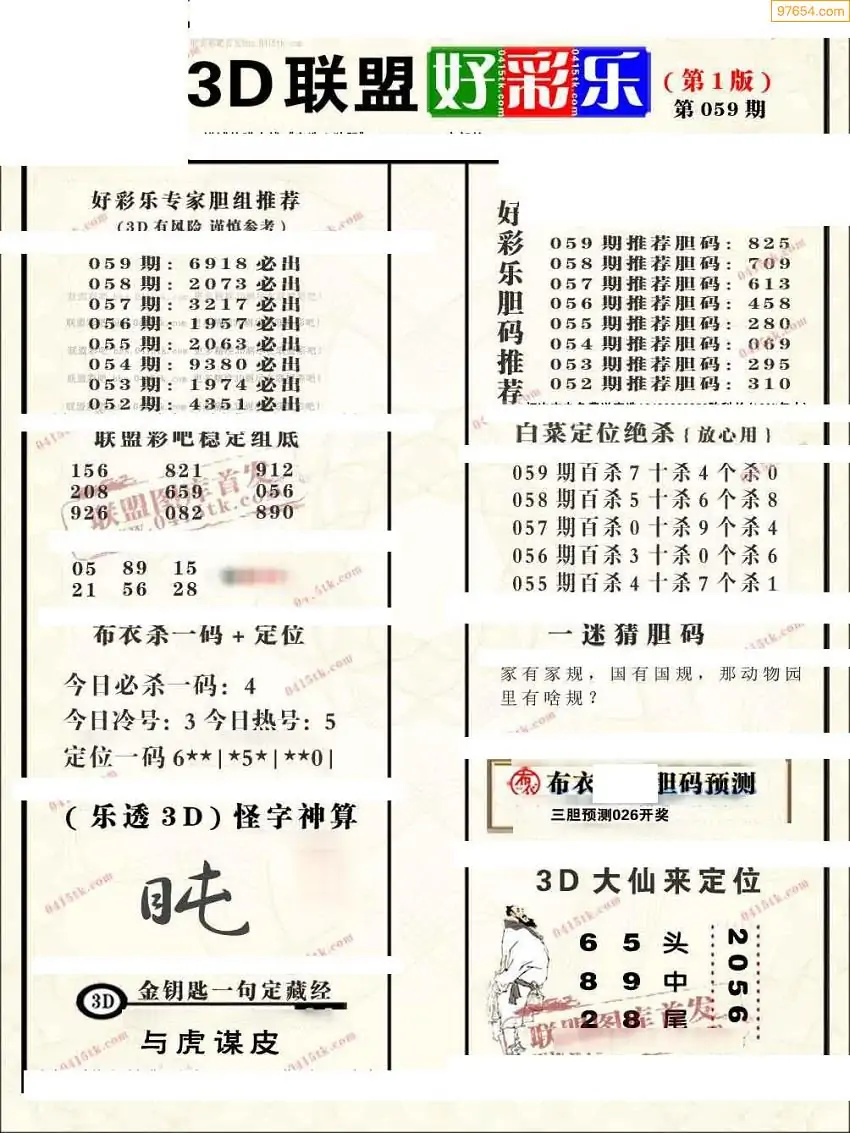 97654.com
3D联盟 好彩乐 (第1版)
第059期
好彩乐专家胆组推荐
(3D有风险 谨慎参考)
059期: 6918必出
058期: 2073必出
057期: 3217必出
056期: 1957必出
055期: 2063必出
054期: 9380必出
053期: 1974必出
052期: 4351必出
联盟彩吧稳定组底
156 821 912
208 659 056
926 082 890
05 89 15
21 56 28
布衣杀一码+定位
今日必杀一码: 4
今日冷号: 3 今日热号: 5
定位一码 6**|*5*|**0|
(乐透3D)怪字神算
3D 金钥匙一句定藏经
与虎谋皮
好彩乐胆码推荐
059期推荐胆码: 825
058期推荐胆码: 709
057期推荐胆码: 613
056期推荐胆码: 458
055期推荐胆码: 280
054期推荐胆码: 069
053期推荐胆码: 295
052期推荐胆码: 310
白菜定位绝杀{放心用}
059期百杀7十杀4个杀0
058期百杀5十杀6个杀8
057期百杀0十杀9个杀4
056期百杀3十杀0个杀6
055期百杀4十杀7个杀1
一迷猜胆码
家有家规，国有国规，那动物园
里有啥规？
布衣 布衣 胆码预测
三胆预测026开奖
3D大仙来定位
6 5 头
8 9 中
2 8 尾
2056
联盟图库首发
www.0415tk.com
0415tk.com